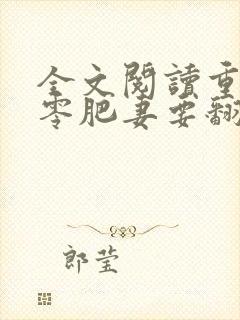 全文閱讀重
零肥妻要翻
郎莹